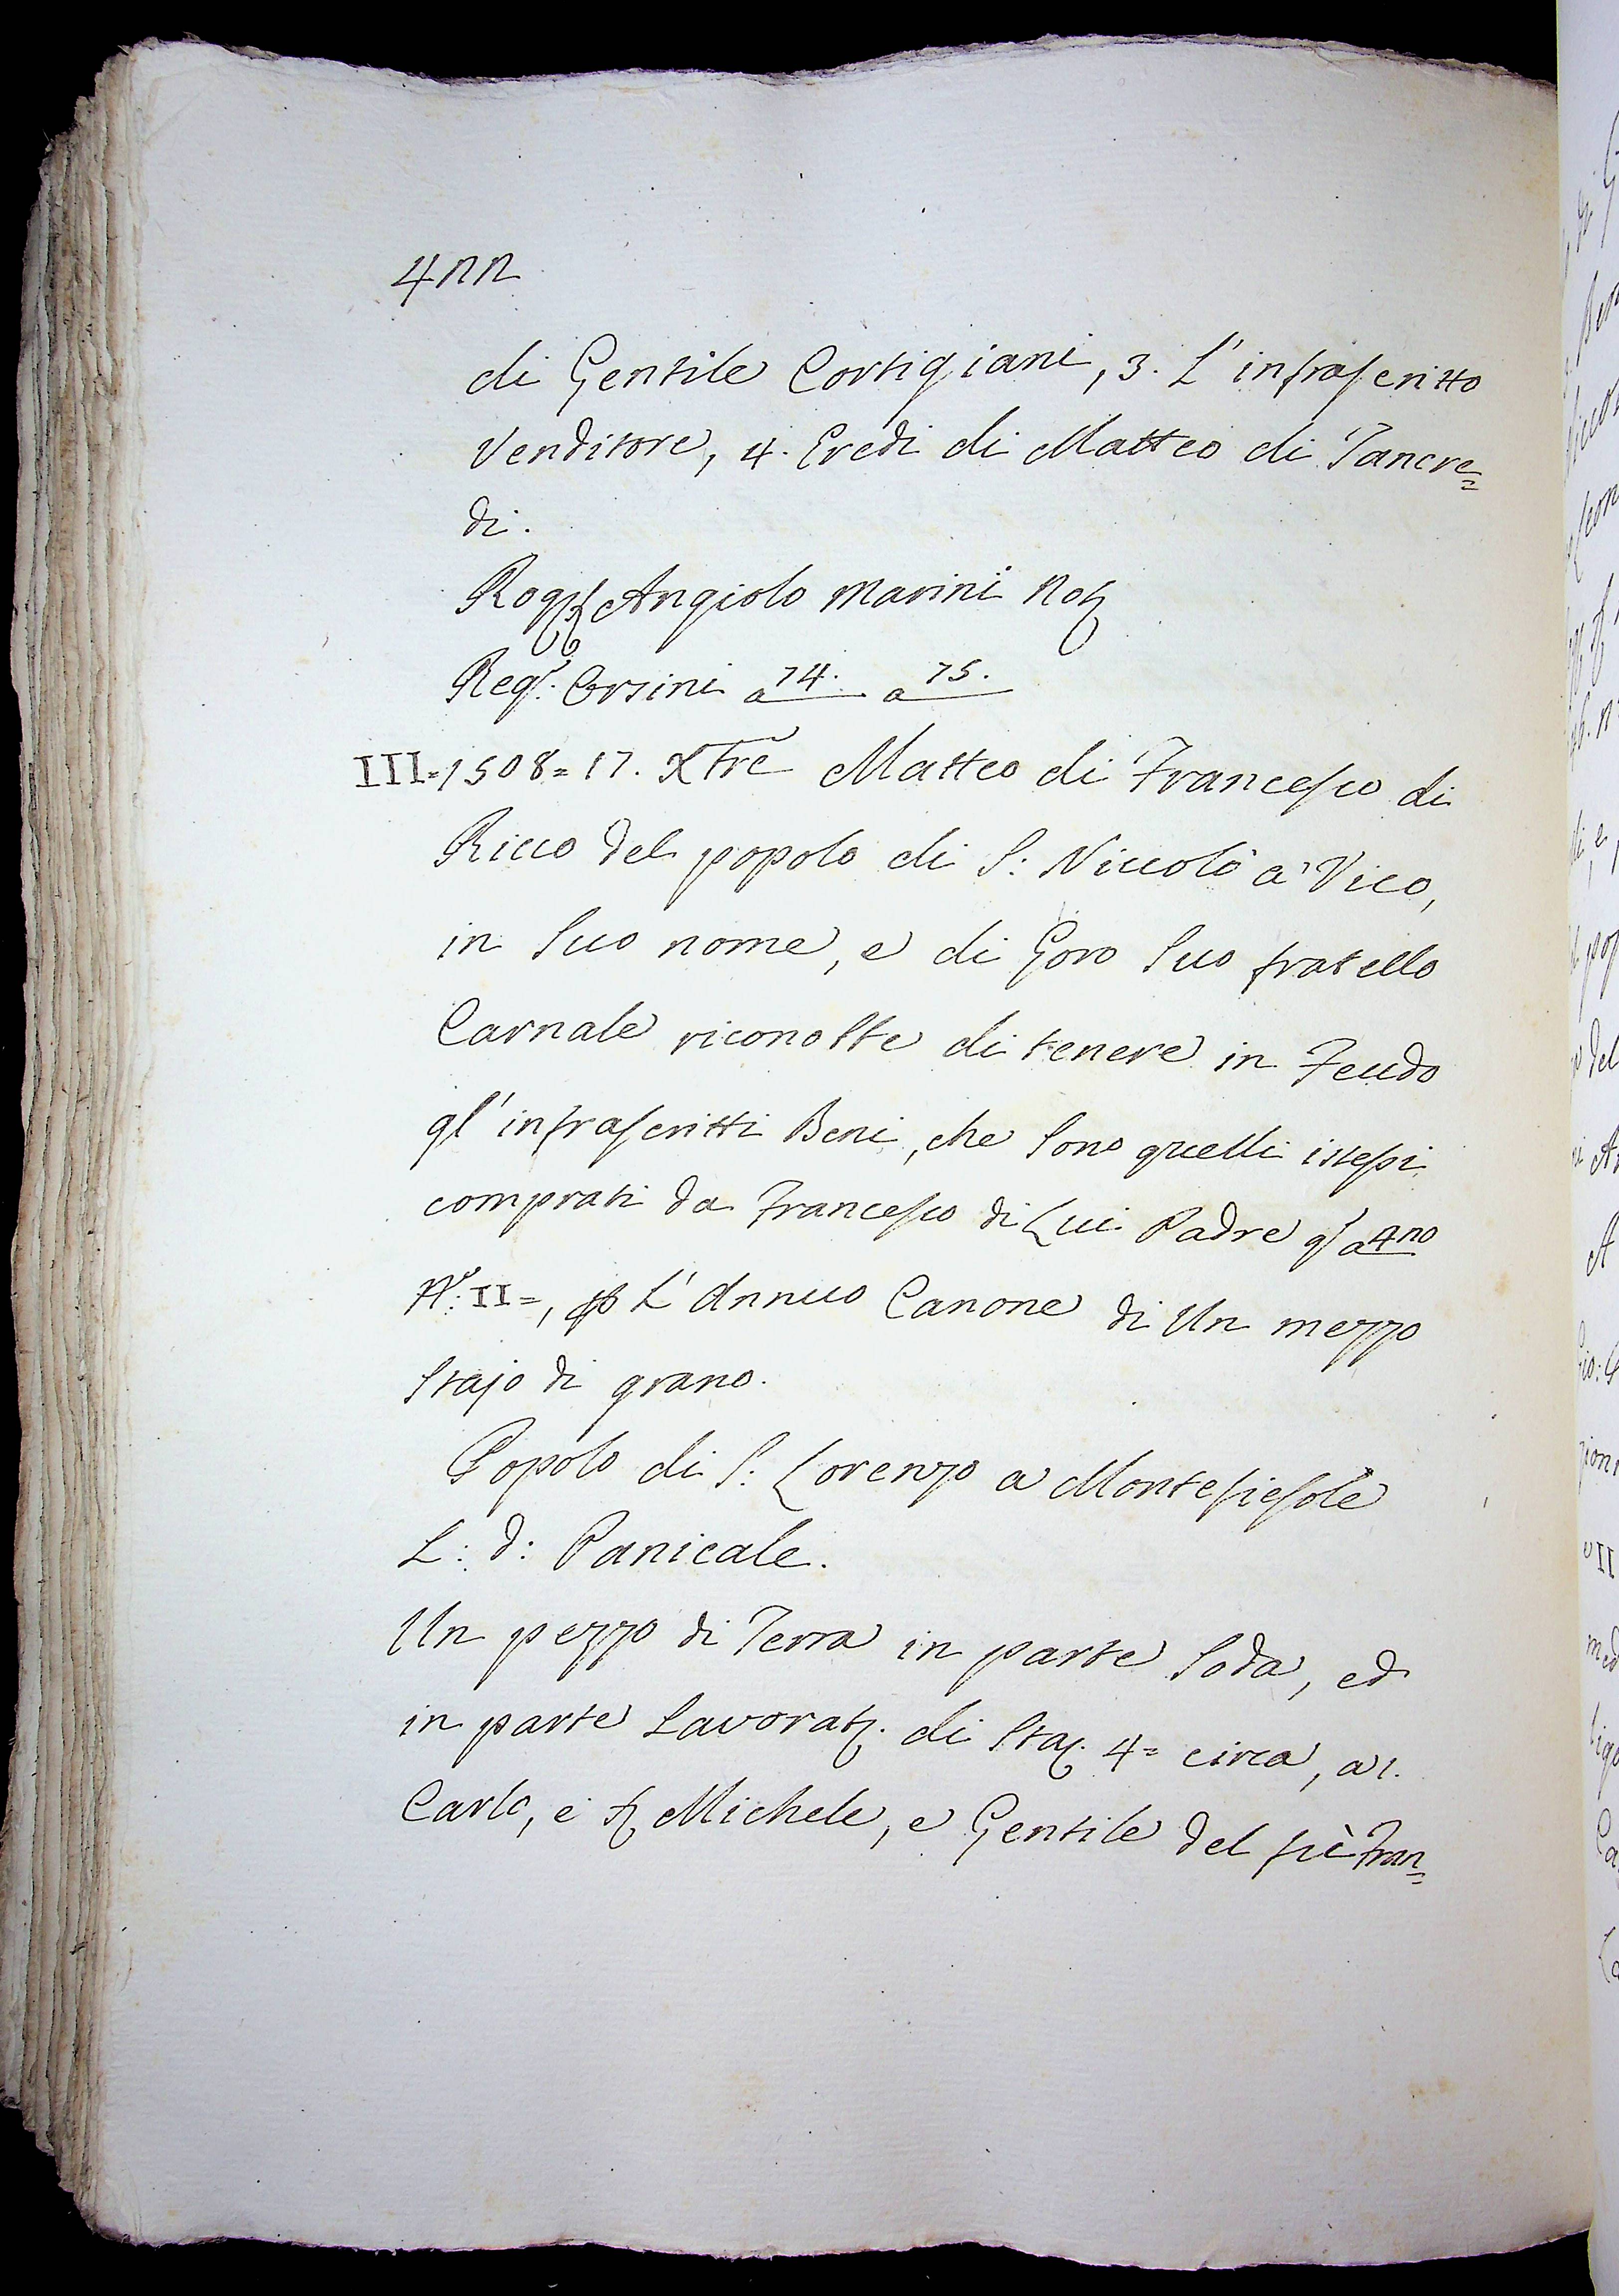 4nn
di Gentile Cortigiani, 3. L'infrascritto
Venditore, 4. Eredi di Matteo di Tancre=
di.
Rog: Ser Angiolo Marini Not:
Reg.º: Orsini a 74. a 75.
III=1508=17. Xbre Matteo di Francesco di
Ricco del popolo di S: Niccolò a' Vico,
in Suo nome, e di Goro Suo fratello
Carnale riconobbe di tenere in Feudo
gl'infrascritti Beni, che Sono quelli istessi
comprati da Francesco di Lui Padre a 4no
N.º: II=, p L'Annuo Canone di Un mezzo
Stajo di grano.
Popolo di S: Lorenzo a Montefiesole
L: d: Panicale.
Un pezzo di Terra in parte Soda, ed
in parte Lavorat: di Sta: 4= circa, a 1.
Carlo, e Michele, e Gentile del fù Fran=